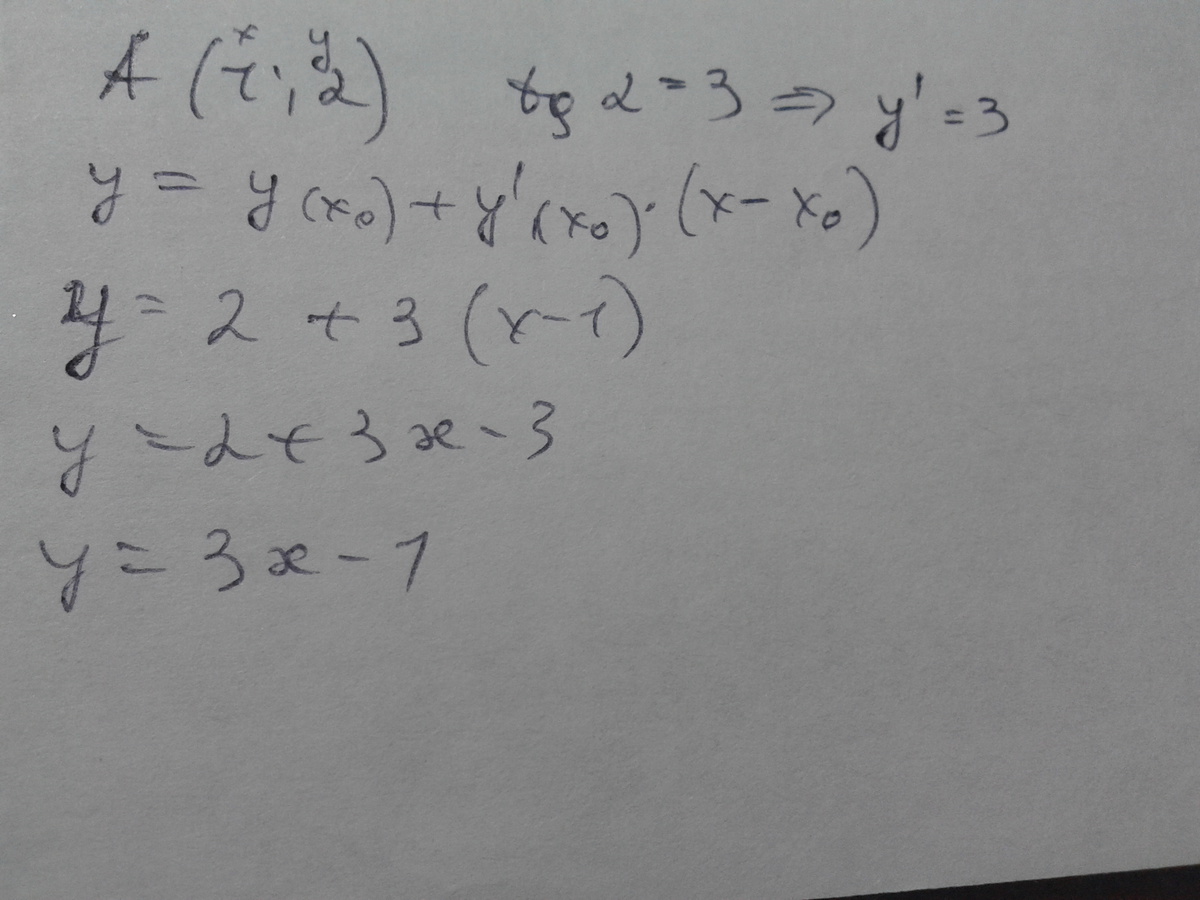 A (1; 2) tg α = 3 ⇒ y' = 3
x y
y = y(x₀) + y'(x₀)·(x - x₀)
y = 2 + 3 (x - 1)
y = 2 + 3x - 3
y = 3x - 1